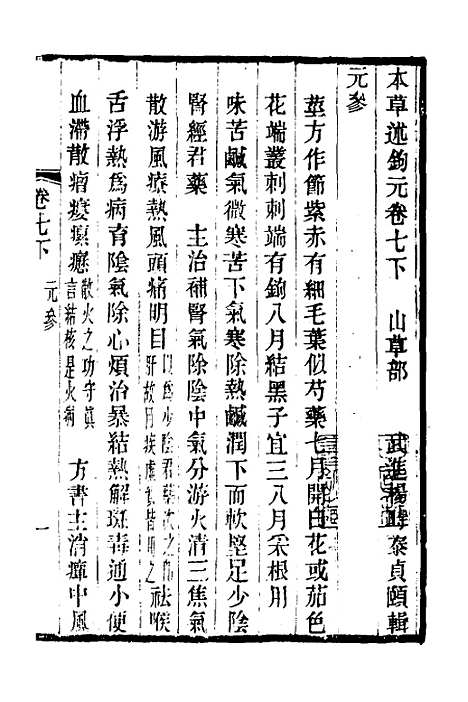 本草述鉤元卷七下　山草部　武進楊時泰貞頤輯
元參
莖方作節紫赤有細毛葉似芍藥七月開白花或茄色
花端叢刺刺端有鉤八月結黑子宜三八月采根用
味苦鹹氣微寒苦下氣寒除熱鹹潤下而軟堅足少陰
腎經君藥　主治補腎氣除陰中氣分游火清三焦氣
散游風療熱風頭痛明目以為少陰君藥沈之祛喉
肝故目疾虛
舌浮熱為病育陰氣除心煩治暴結熱解斑毒通小便
血滯散瘤瘿瘰癧散火之功守真言結核是火病　方書主消癉中風
卷七下　元參　一